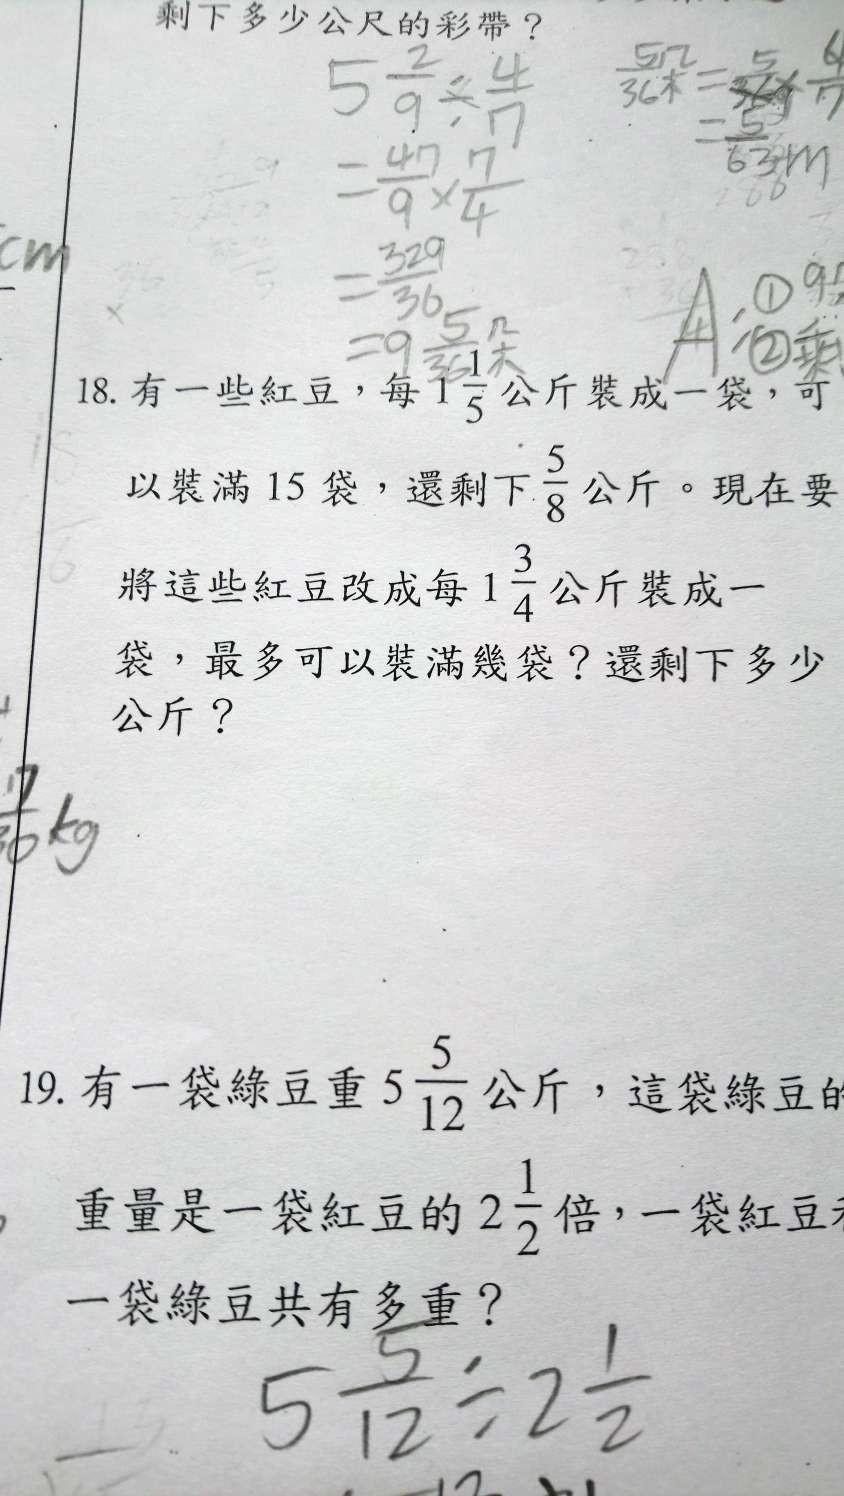 剩下多少公尺的彩帶？
5 2/9 ÷ 4/7
= 47/9 × 7/4
= 329/36
= 9 5/36 朵
= 5/63 m
A:①9
②剩
cm
18. 有一些紅豆，每 1 1/5 公斤裝成一袋，可
以裝滿 15 袋，還剩下 5/8 公斤。現在要
將這些紅豆改成每 1 3/4 公斤裝成一
袋，最多可以裝滿幾袋？還剩下多少
公斤？
kg
19. 有一袋綠豆重 5 5/12 公斤，這袋綠豆的
重量是一袋紅豆的 2 1/2 倍，一袋紅豆和
一袋綠豆共有多重？
5 5/12 ÷ 2 1/2